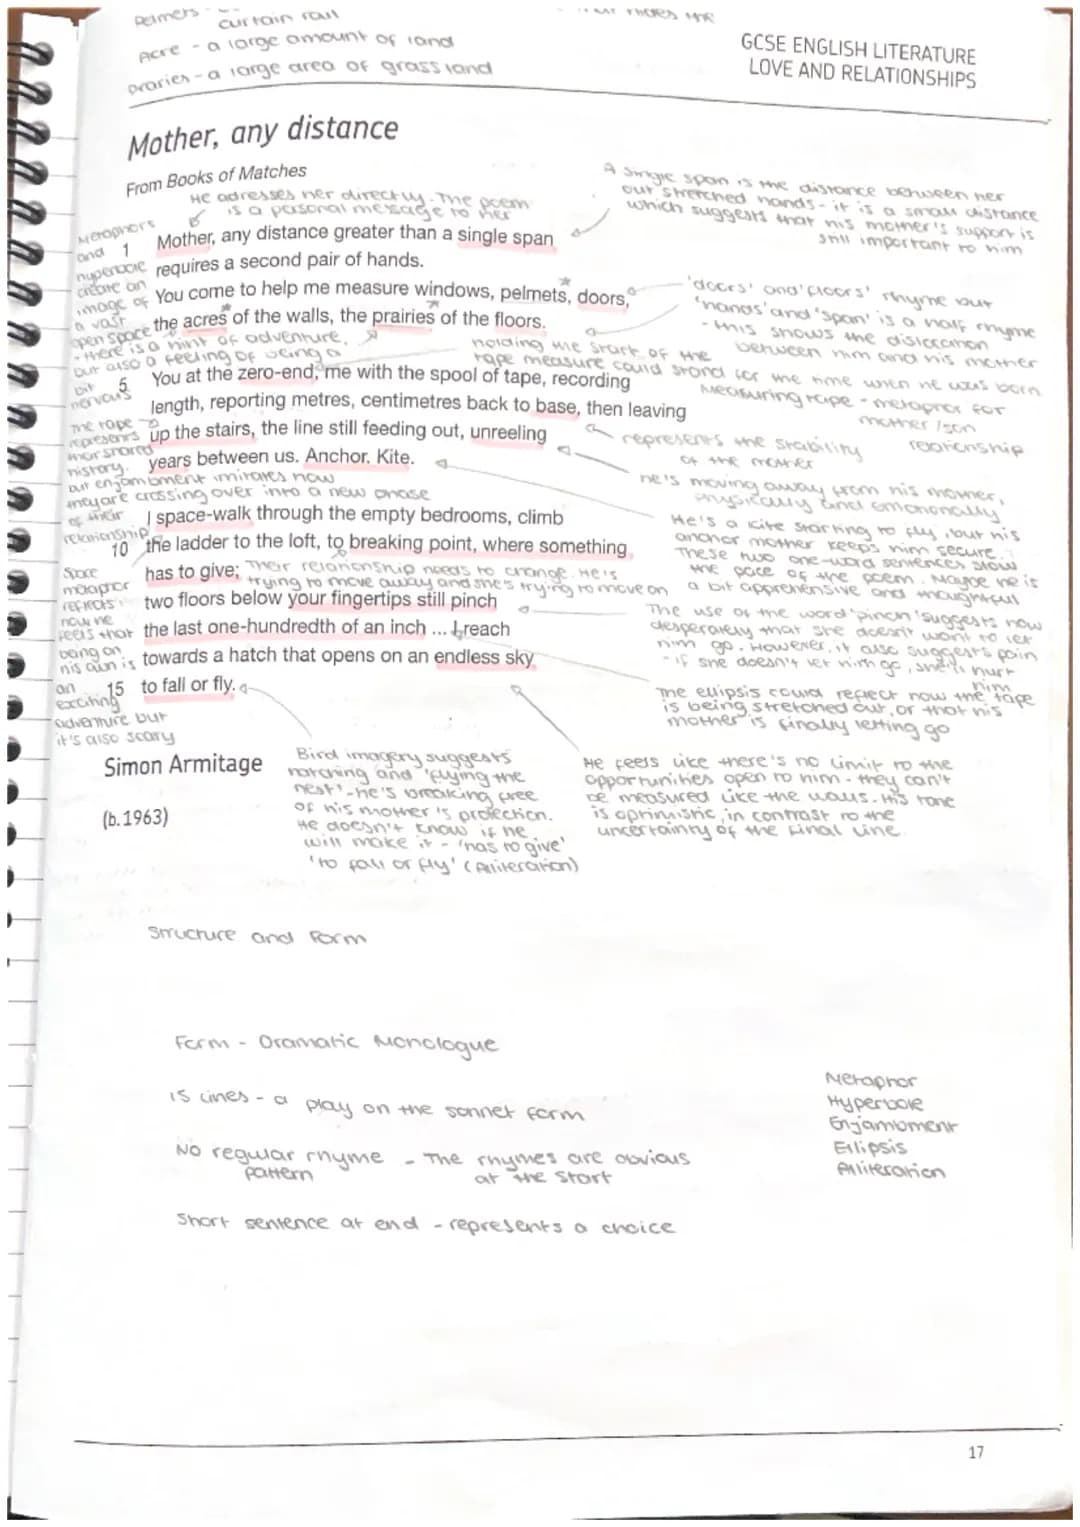 Pelmets -
curtain rail
hides the
Acre - a large amount of land
praries - a large area of grassland
GCSE ENGLISH LITERATURE
LOVE AND RELATIONSHIPS
Mother, any distance
From Books of Matches
He adresses her directly. The poem
is a pesonal message to her
A single span is the distance between her
outstretched hands - it is a small distance
which suggests that his mother's support is
still important to him
Metaphors
and
hyperbole
create an
image of
a vast
open space
- there is a hint of adventure,
but also a feeling of being a
bit
nervous
1 Mother, any distance greater than a single span
requires a second pair of hands.
You come to help me measure windows, pelmets, doors,
the acres of the walls, the prairies of the floors.
'doors' and 'floors' rhyme but
'hands' and 'span' is a half rhyme
- this shows the dislocation
between him and his mother
holding the start of the
tape measure could stand for the time when he was born
Measuring tape - metaphor for
mother/son
relationship
5 You at the zero-end, me with the spool of tape, recording
length, reporting metres, centimetres back to base, then leaving
up the stairs, the line still feeding out, unreeling
years between us. Anchor. Kite.
represents the stability
of the mother
he's moving away from his mother,
physically and emotionally
The tape
represents
their shared
history.
but enjambment imitates how
they are crossing over into a new phase
of their
relationship
I space-walk through the empty bedrooms, climb
10 the ladder to the loft, to breaking point, where something
has to give;
Their relationship needs to change. He's
trying to move away and she's trying to move on
two floors below your fingertips still pinch
the last one-hundredth of an inch ... I reach
towards a hatch that opens on an endless sky
15 to fall or fly.
He's a kite starting to fly, but his
anchor mother keeps him secure.
These two one-word sentences slow
the pace of the poem. Maybe he is
a bit apprehensive and thoughtful
Space
metaphor
reflects
how he
feels that
being on
his own is
an
exciting
adventure but
it's also scary
The use of the word 'pinch' suggests how
desperately that she doesn't want to let
him go. However, it also suggests pain
- if she doesn't let him go, she'll hurt
him
The ellipsis could reflect how the tape
is being stretched out, or that his
mother is finally letting go
Simon Armitage
(b.1963)
Bird imagery suggests
hatching and 'flying the
nest' - he's breaking free
of his mother's protection.
He doesn't know if he
will make it - 'has to give'
'to fall or fly' (Alliteration)
He feels like there's no limit to the
opportunities open to him - they can't
be measured like the walls. His tone
is optimistic, in contrast to the
uncertainty of the final line.
Structure and Form
Form - Dramatic Monologue
15 Lines - a play on the sonnet form
No regular rhyme - The rhymes are obvious
pattern
at the start
Short sentence at end - represents a choice
Metaphor
Hyperbole
Enjambment
Ellipsis
Alliteration
17